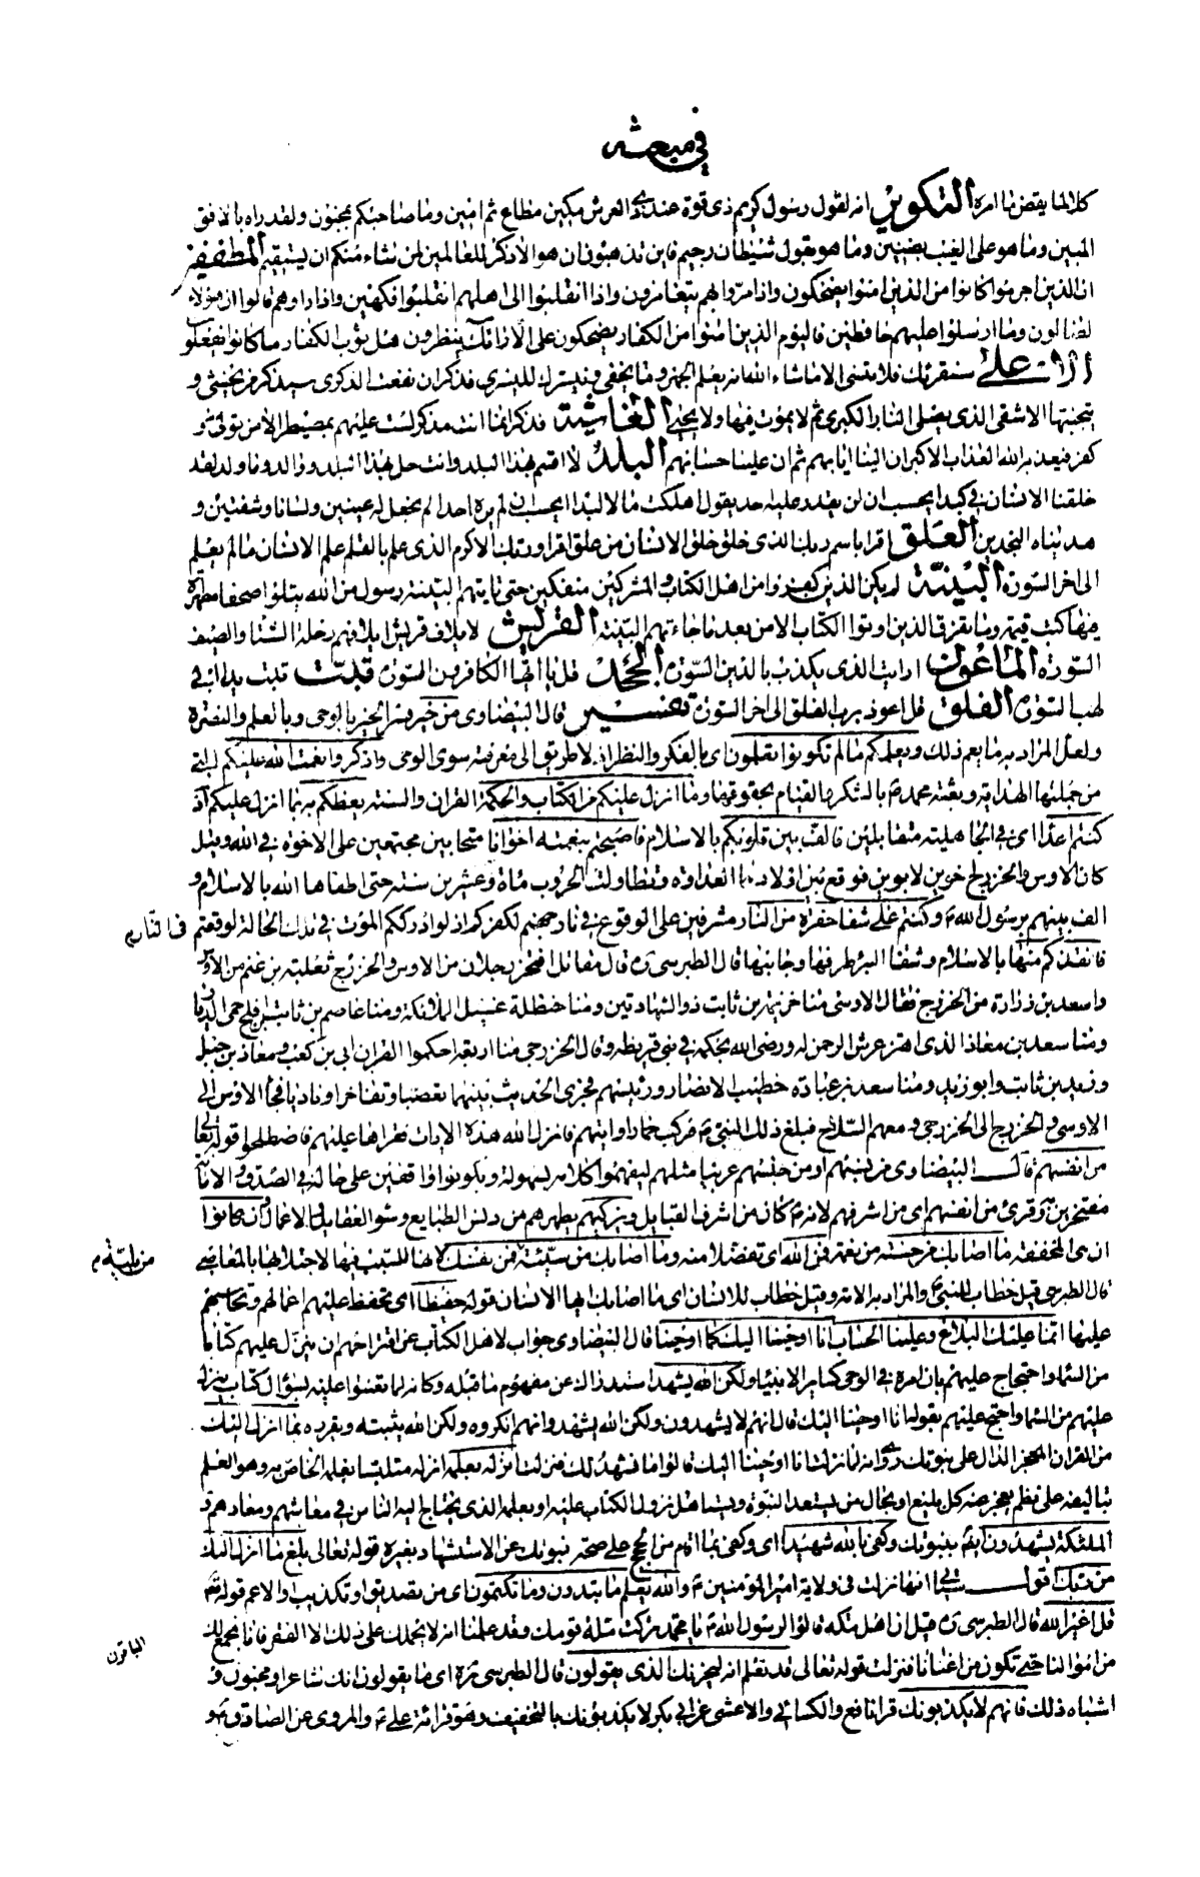 في مبعثه
كلا لما يقض ما امره التكوير انه لقول رسول كريم ذي قوة عند ذي العرش مكين مطاع ثم امين وما صاحبكم بمجنون ولقد راه بالافق
المبين وما هو على الغيب بضنين وما هو بقول شيطان رجيم فاين تذهبون ان هو الا ذكر للعالمين لمن شاء منكم ان يستقيم المطففين
ان الذين اجرموا كانوا من الذين امنوا يضحكون واذا مروا بهم يتغامزون واذا انقلبوا الى اهلهم انقلبوا فكهين واذا راوهم قالوا ان هؤلاء
لضالون وما ارسلوا عليهم حافظين فاليوم الذين امنوا من الكفار يضحكون على الارائك ينظرون هل ثوب الكفار ما كانوا يفعلون
الاعلى سنقرئك فلا تنسى الا ما شاء الله انه يعلم الجهر وما يخفى ونيسرك لليسرى فذكر ان نفعت الذكرى سيذكر من يخشى و
يتجنبها الاشقى الذي يصلى النار الكبرى ثم لا يموت فيها ولا يحيى الغاشية فذكر انما انت مذكر لست عليهم بمصيطر الا من تولى و
كفر فيعذبه الله العذاب الاكبر ان الينا ايابهم ثم ان علينا حسابهم البلد لا اقسم بهذا البلد وانت حل بهذا البلد ووالد وما ولد لقد
خلقنا الانسان في كبد ايحسب ان لن يقدر عليه احد يقول اهلكت مالا لبدا ايحسب ان لم يره احد الم نجعل له عينين ولسانا وشفتين و
هديناه النجدين العلق اقرا باسم ربك الذي خلق خلق الانسان من علق اقرا وربك الاكرم الذي علم بالقلم علم الانسان ما لم يعلم
الى اخر السورة البينة لم يكن الذين كفروا من اهل الكتاب والمشركين منفكين حتى تاتيهم البينة رسول من الله يتلوا صحفا مطهرة
فيها كتب قيمة وما تفرق الذين اوتوا الكتاب الا من بعد ما جاءتهم البينة القريش لايلاف قريش ايلافهم رحلة الشتاء والصيف
السورة الماعون ارايت الذي يكذب بالدين السورة الجحد قل يا ايها الكافرون السورة تبت تبت يدا ابي
لهب السورة الفلق قل اعوذ برب الفلق الى اخر السورة تفسير قال البيضاوي من خير فسر الخير بالوحي وبالعلم والنصرة
ولعل المراد به ما يعم ذلك ويعلمكم ما لم تكونوا تعلمون اي بالفكر والنظر اذ لا طريق الى معرفته سوى الوحي واذكروا نعمة الله عليكم التي
من جملتها الهداية وبعثة محمد ص بالشكر والقيام بحقوقها وما انزل عليكم من الكتاب والحكمة القران والسنة يعظكم به بما انزل عليكم اذ
كنتم اعداء اي في الجاهلية متقاتلين فالف بين قلوبكم بالاسلام فاصبحتم بنعمته اخوانا متحابين مجتمعين على الاخوة في الله وقيل
كان الاوس والخزرج اخوين لابوين فوقع بين اولادهما العداوة وتطاولت الحروب مائة وعشرين سنة حتى اطفاها الله بالاسلام و
الف بينهم برسول الله ص وكنتم على شفا حفرة من النار مشرفين على الوقوع في نار جهنم لكفركم اذ لو ادرككم الموت في تلك الحالة لوقعتم
في النار م
فانقذكم منها بالاسلام وشفا البئر طرفها وجانبها قال الطبرسي ره قال مقاتل افتخر رجلان من الاوس والخزرج ثعلبة بن غنم من الاوس
واسعد بن زرارة من الخزرج فقال الاوسي منا خزيمة بن ثابت ذو الشهادتين ومنا حنظلة غسيل الملائكة ومنا عاصم بن ثابت بن افلح حمي الدبر
ومنا سعد بن معاذ الذي اهتز عرش الرحمن له ورضي الله بحكمه في بني قريظة وقال الخزرجي منا اربعة احكموا القران ابي بن كعب ومعاذ بن جبل
وزيد بن ثابت وابو زيد ومنا سعد بن عبادة خطيب الانصار ورئيسهم فجرى الحديث بينهما تعصبا وتفاخرا وناديا فجاء الاوس الى
الاوسي والخزرج الى الخزرجي ومعهم السلاح فبلغ ذلك النبي ص فركب حمارا واتاهم فانزل الله هذه الايات فقراها عليهم فاصطلحوا قوله تعالى
من انفسهم قال البيضاوي من نسبهم او من جنسهم عربيا مثلهم ليفهموا كلامه بسهولة ويكونوا واقفين على حاله في الصدق والامانة
مفتخرين به وقرئ من انفسهم اي من اشرفهم لانه ص كان من اشرف القبايل ويزكيهم يطهرهم من دنس الطبايع وسوء العقايد والاعمال وان كانوا
ان هي المخففة ما اصابك من حسنة من نعمة فمن الله اي تفضلا منه وما اصابك من سيئة فمن نفسك لانها السبب فيها لاجتلابها بالمعاصي
من بلية م
قال الطبرسي قيل خطاب للنبي ص والمراد به الامة وقيل خطاب للانسان اي ما اصابك ايها الانسان قوله حفيظا اي تحفظ عليهم اعمالهم وتحاسبهم
عليها انما عليك البلاغ وعلينا الحساب انا اوحينا اليك كما اوحينا قال البيضاوي جواب لاهل الكتاب عن اقتراحهم ان ينزل عليهم كتابا
من السماء واحتجاج عليهم بان امره في الوحي كساير الانبياء ولكن الله يشهد استدراك عن مفهوم ما قبله وكانه لما تعنتوا عليه بسؤال كتاب ينزل
عليهم من السماء واحتج عليهم بقوله انا اوحينا اليك قال انهم لا يشهدون ولكن الله يشهد او انهم انكروه ولكن الله يثبته ويقرره بما انزل اليك
من القران المعجز الدال على نبوتك روي انه لما نزلت انا اوحينا اليك قالوا ما نشهد لك فنزلت انزله بعلمه انزله متلبسا بعلمه الخاص به وهو العلم
بتاليفه على نظم يعجز عنه كل بليغ او بحال من يستعد النبوة ويستاهل نزول الكتاب عليه او بعلمه الذي يحتاج اليه الناس في معاشهم ومعادهم و
الملئكة يشهدون ايضا بنبوتك وكفى بالله شهيدا اي وكفى بما اقام من الحجج على صحة نبوتك عن الاستشهاد بغيره قوله تعالى بلغ ما انزل اليك
من ربك اقول سياتي انها نزلت في ولاية امير المؤمنين ع والله يعلم ما تبدون وما تكتمون اي من تصديق وتكذيب او الاعم قوله تعالى
قل اغير الله قال الطبرسي ره قيل ان اهل مكة قالوا لرسول الله ص يا محمد تركت ملة قومك وقد علمنا انه لا يحملك على ذلك الا الفقر فانا نجمع لك
من اموالنا حتى تكون من اغنانا فنزلت قوله تعالى قد نعلم انه ليحزنك الذي يقولون قال الطبرسي ره اي ما يقولون انك شاعر او مجنون و
الباقون
اشباه ذلك فانهم لا يكذبونك قرا نافع والكسائي والاعشى عن ابي بكر لا يكذبونك بالتخفيف وهو قرائة علي ع والمروي عن الصادق ع و